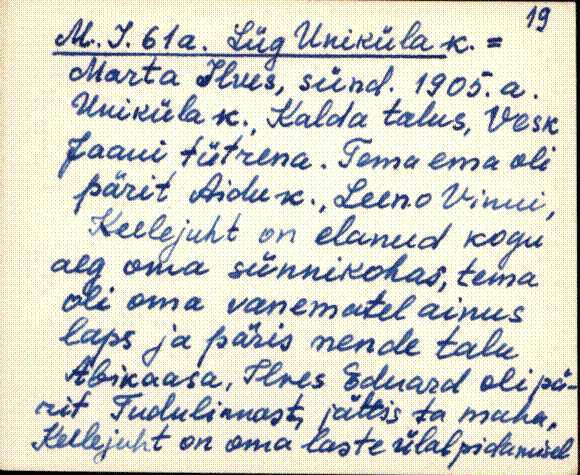 19
M. I. 61a. Lüg Uniküla k. =
Marta Ilves, sünd. 1905. a.
Uniküla k., Kalda talus, Vesk
Jaani tütrena. Tema ema oli
pärit Aidu k., Leeno Vinni,
Keelejuht on elanud kogu
aeg oma sünnikohas, tema
oli oma vanematel ainus
laps ja päris nende talu
Abikaasa, Ilves Eduard oli pä-
rit Tudulinnast, jättis ta maha,
Keelejuht on oma laste ülalpidamisel